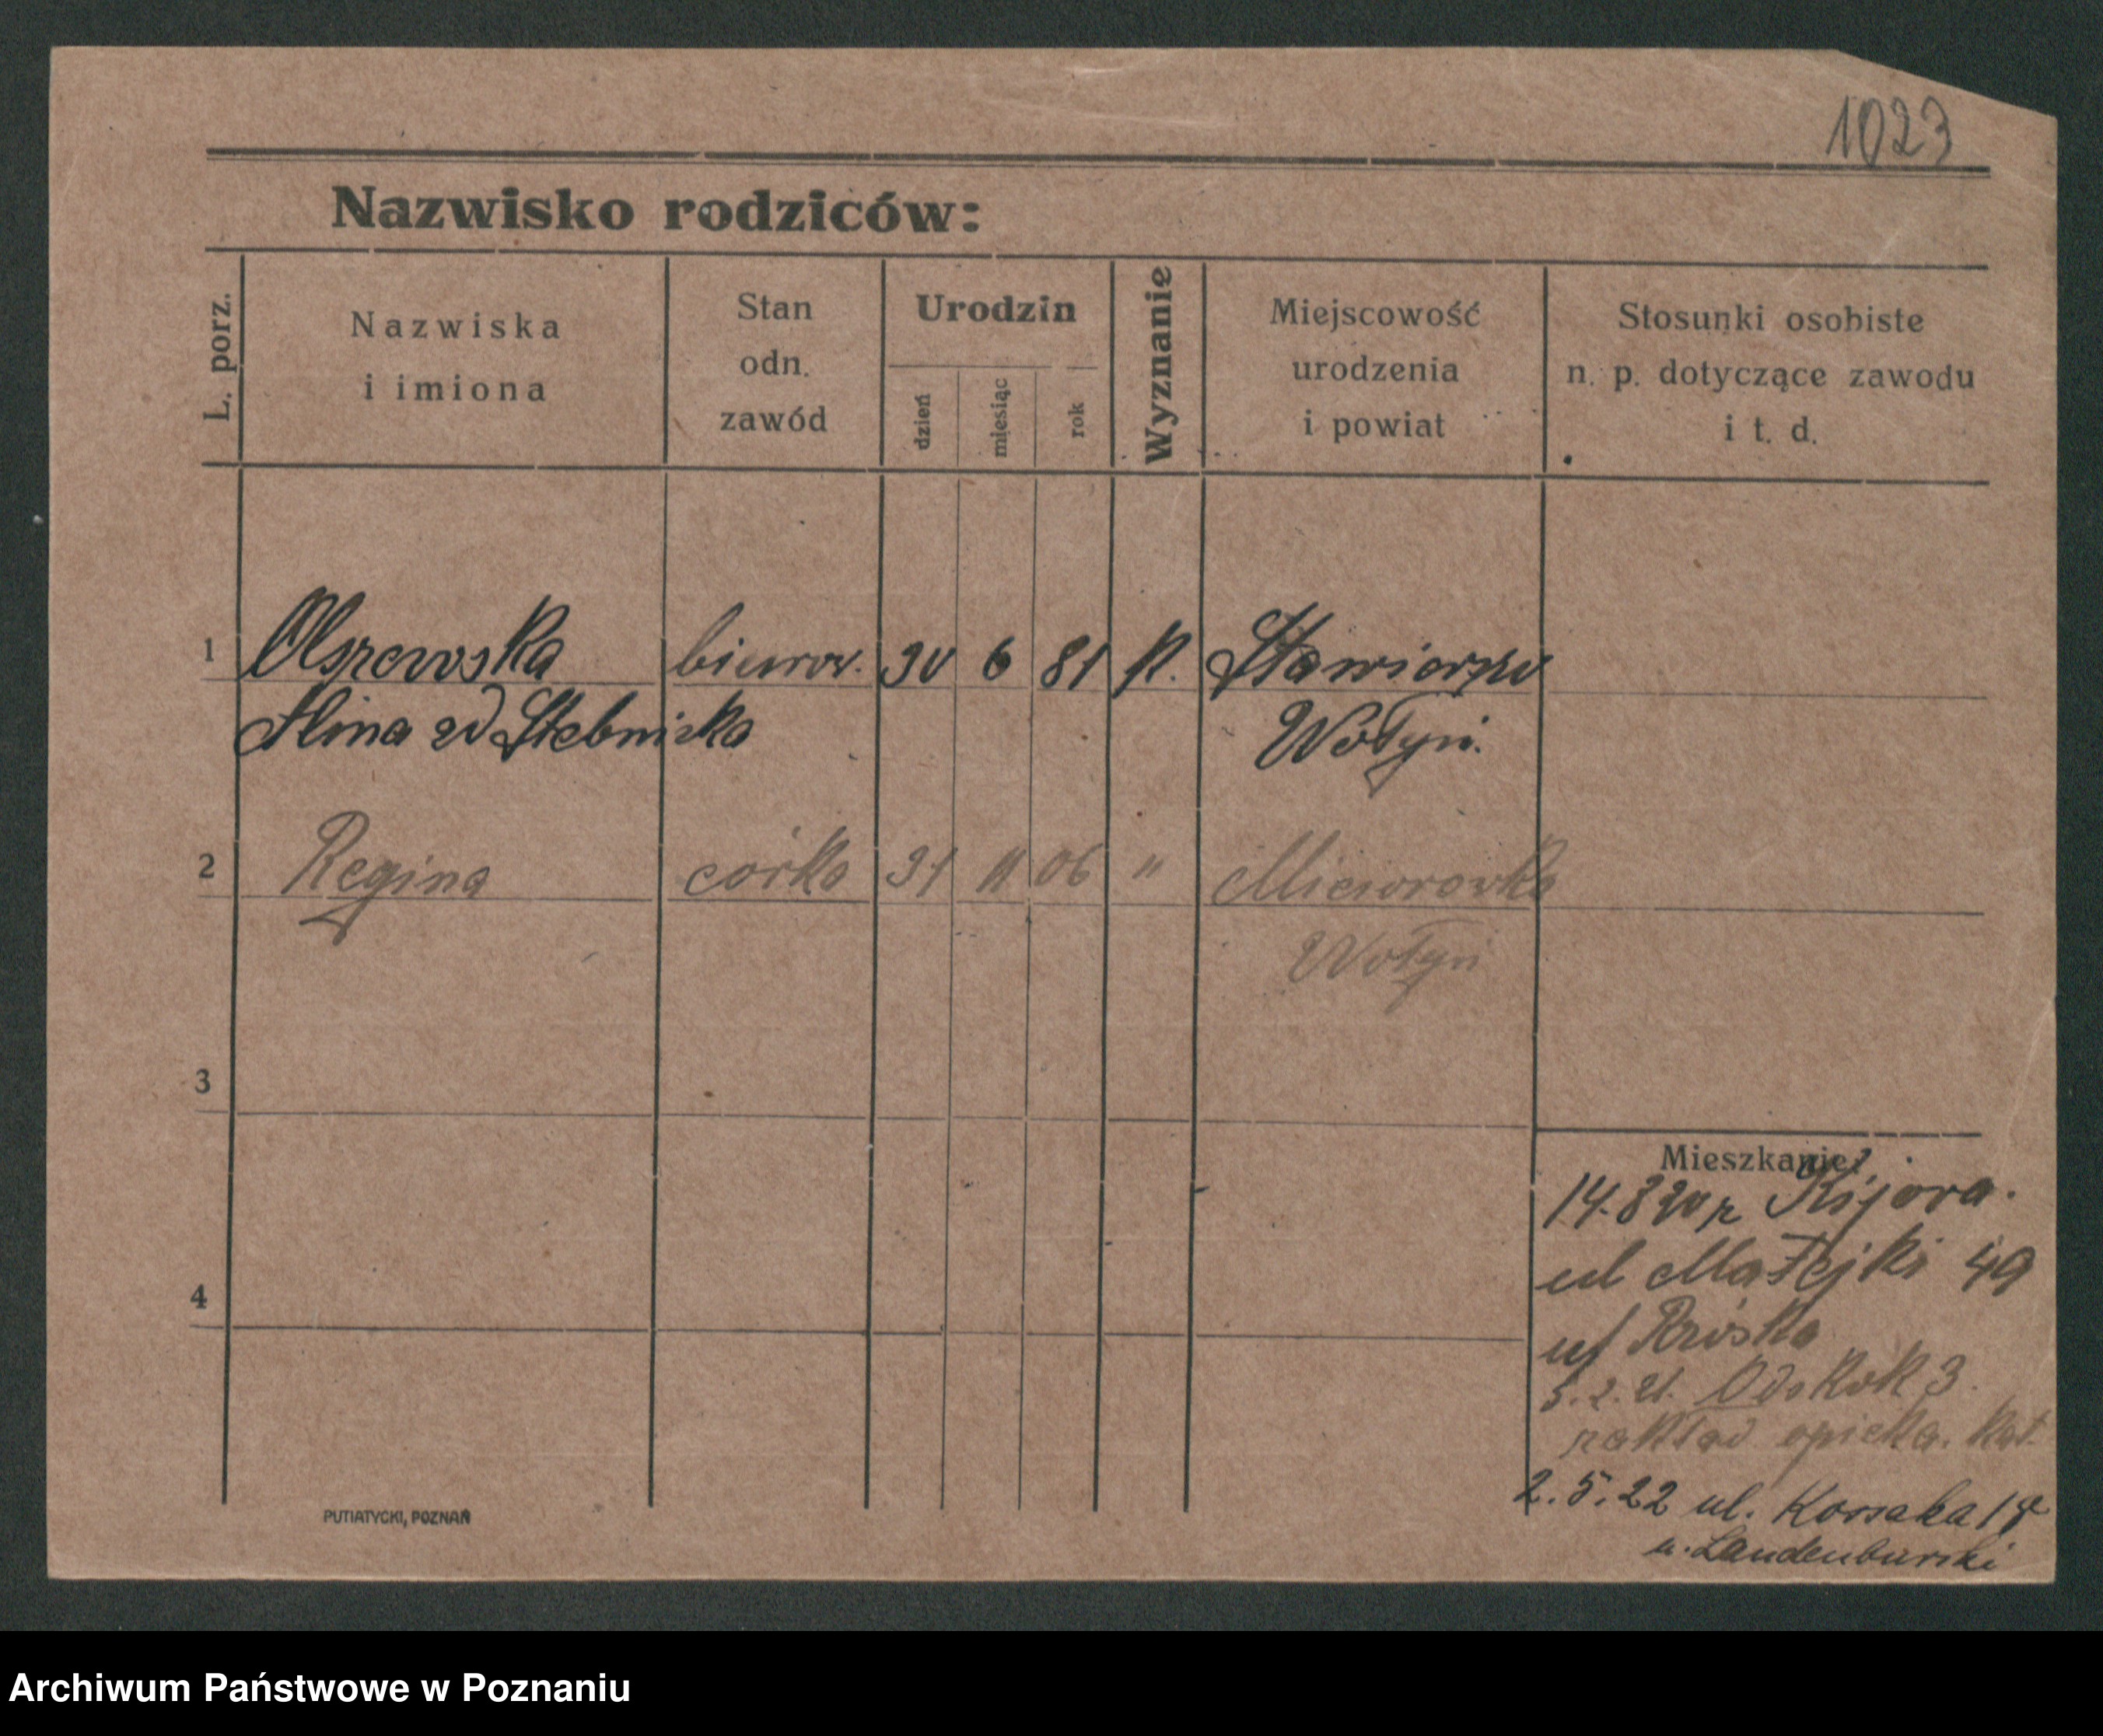 1023
Nazwisko rodziców:
L. porz.
Nazwiska
i imiona
Stan
odn.
zawód
Urodzin
dzień
miesiąc
rok
Wyznanie
Miejscowość
urodzenia
i powiat
Stosunki osobiste
n. p. dotyczące zawodu
i t. d.
1 Olszewska biurow. 30 6 81 k.
Alina zd Stebnicka Wołyń
2 Regina córka 31 11 06 "
Wołyń
3
4
Mieszkanie:
14.8 20 z Kijowa.
ul Matejki 49
5.2.21.
zakład opieka. Kat.
2.5.22 ul. Kossaka
u. Landenburski
PUTIATYCKI, POZNAŃ
Archiwum Państwowe w Poznaniu